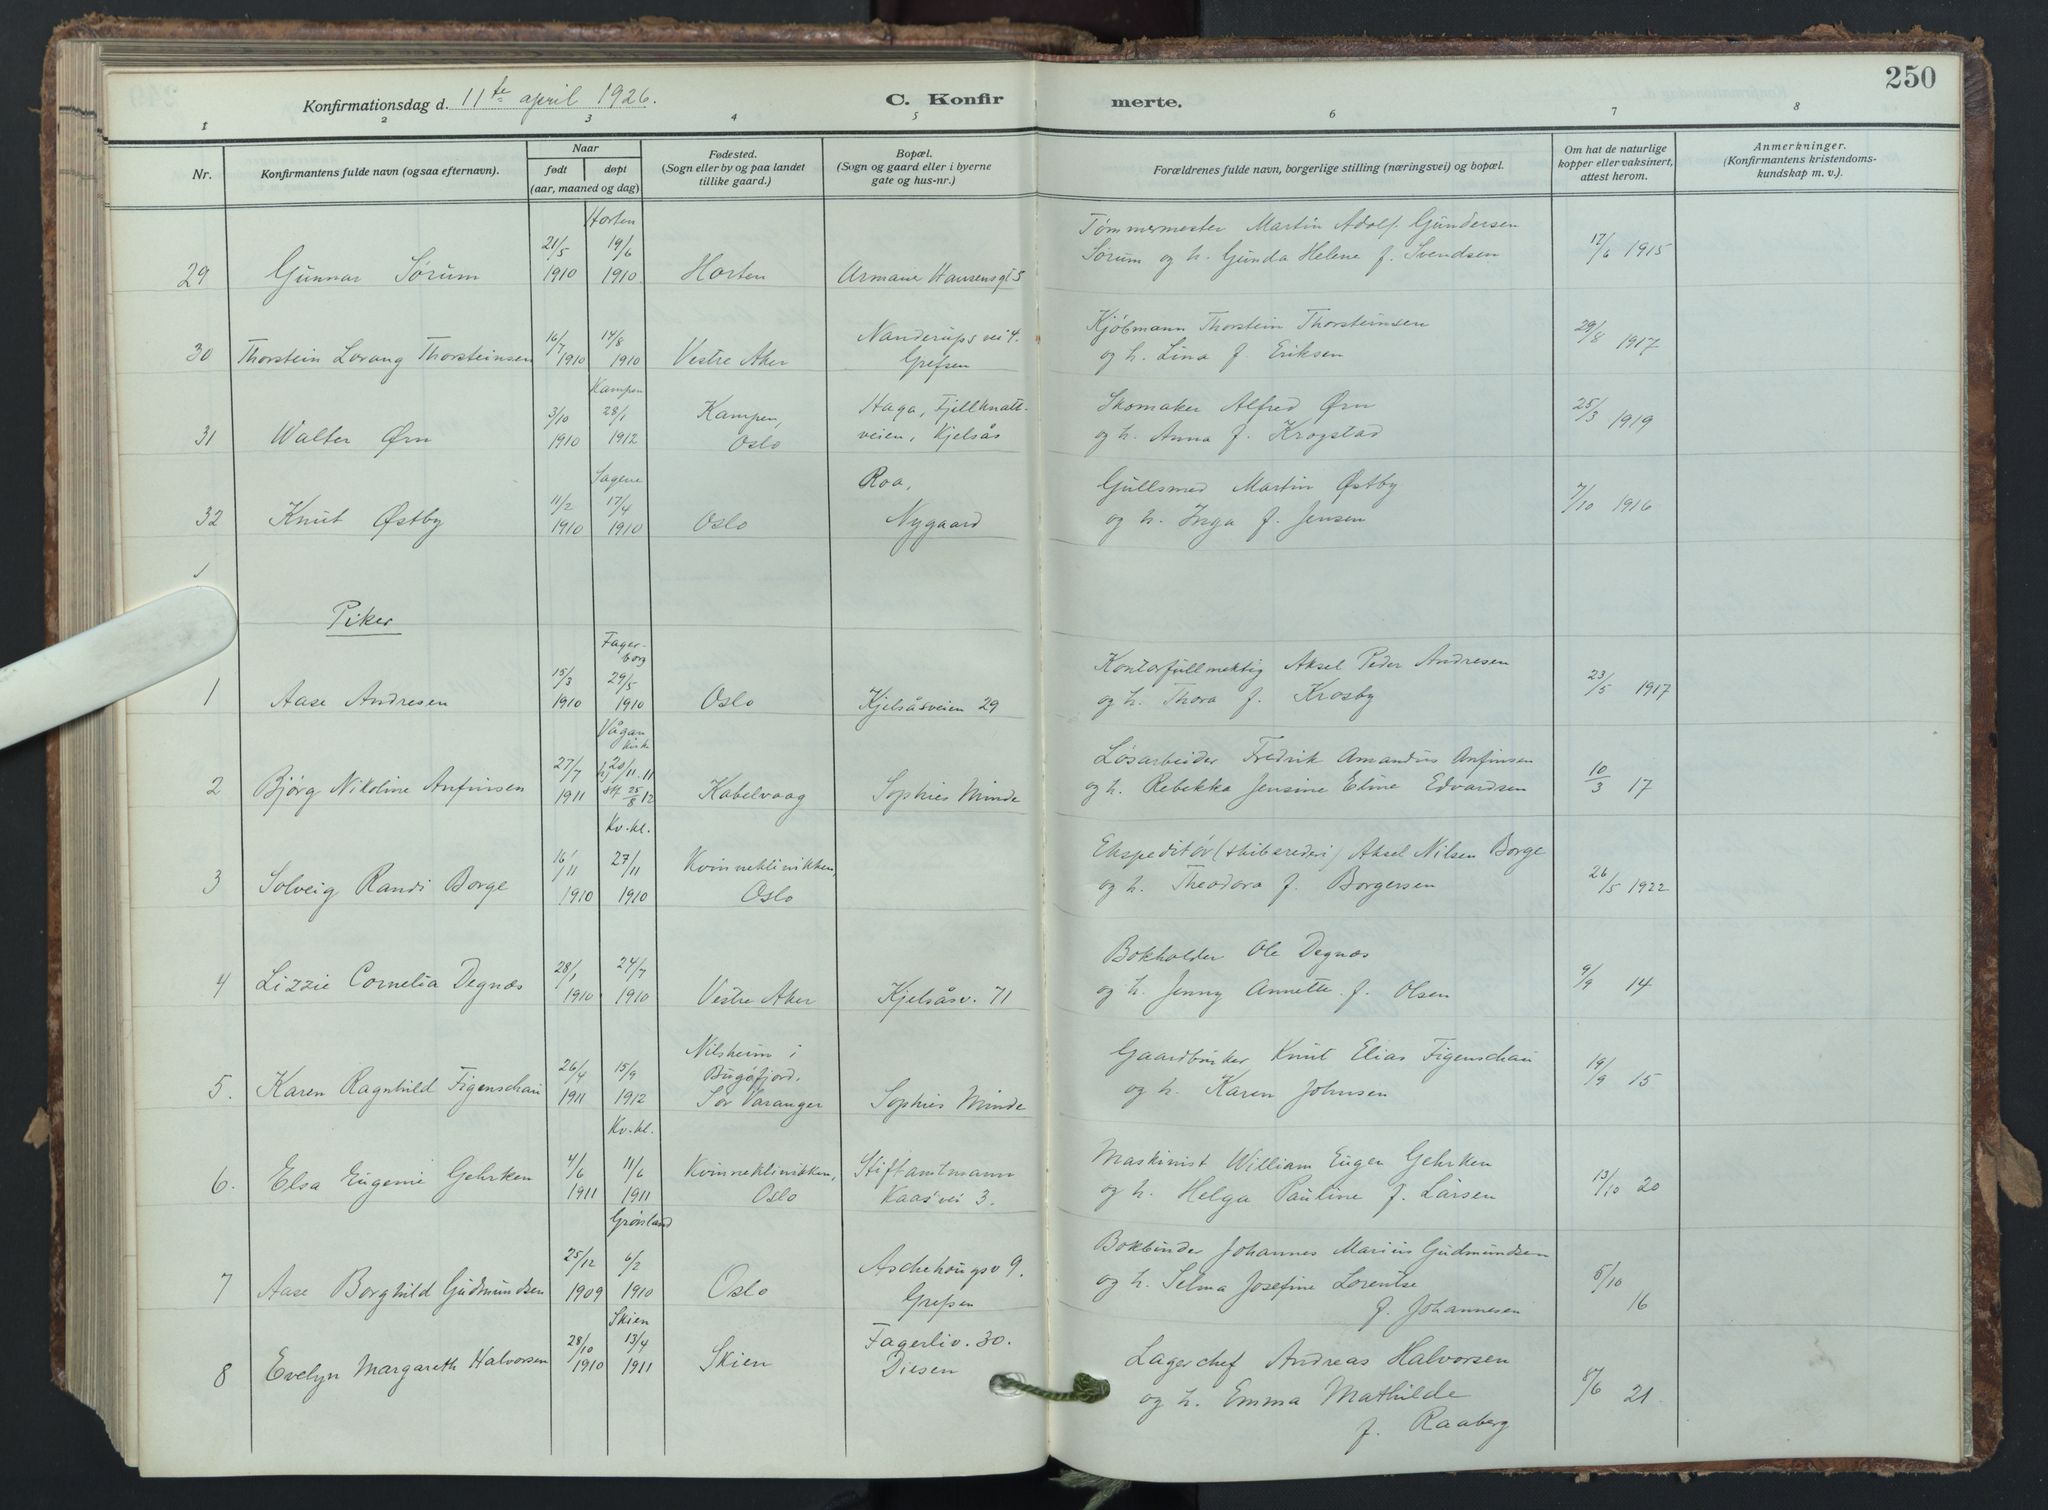 250
Konfirmationsdag d. 11te april 1926.
C. Konfirmerte.
1 2 3 4 5 6 7 8
Nr.
Konfirmantens fulde navn (ogsaa efternavn).
Naar
født døpt
(aar, maaned og dag)
Fødested.
(Sogn eller by og paa landet
tillike gaard.)
Bopæl.
(Sogn og gaard eller i byerne
gate og hus-nr.)
Forældrenes fulde navn, borgerlige stilling (næringsvei) og bopæl.
Om hat de naturlige
kopper eller vaksinert,
attest herom.
Anmerkninger.
(Konfirmantens kristendoms-
kundskap m. v.).
Horten
29 Gunnar Sørum 21/5 1910 19/6 1910 Horten Armauer Hansensgt 5
Tømmermester Martin Adolf Gundersen
Sørum og h. Gunda Helene f. Svendsen
17/6 1915
30 Thorstein Lorang Thorsteinsen 16/7 1910 14/8 1910 Vestre Aker Nanderups vei 4.
Grefsen
Kjøbmann Thorstein Thorsteinsen
og h. Lina f. Eriksen
29/8 1917
Kampen
31 Walter Ørn 3/10 1910 28/1 1912 Kampen,
Oslo
Haga, Fjellknatt-
veien, Kjelsås
Skomaker Alfred Ørn
og h. Anna f. Krogstad
25/3 1919
Sagene
32 Knut Østby 11/2 1910 17/4 1910 Oslo Roa,
Nygaard
Gullsmed Martin Østby
og h. Inga f. Jensen
7/10 1916
Piker
Fager-
borg
1 Aase Andresen 15/3 1910 29/5 1910 Oslo Kjelsåsveien 29
Kontorfullmektig Aksel Peder Andresen
og h. Thora f. Krosby
23/5 1917
Vågan
kirke
2 Bjørg Nikoline Anfinsen 27/7 1911 hj 20/11.11
stf 25/8 12
Kabelvaag Sophies Minde
Løsarbeider Fredrik Amandus Anfinsen
og h. Rebekka Jensine Eline Edvardsen
10/3 17
Kv.kl.
3 Solveig Randi Borge 16/11 1910 27/11 1910 Kvinneklinikken,
Oslo
Ekspeditør (skibsrederi) Aksel Nilsen Borge
og h. Theodora f. Borgersen
26/5 1922
4 Lizzie Cornelia Degnæs 28/1 1910 24/7 1910 Vestre Aker Kjelsåsv. 71
Bokholder Ole Degnæs
og h. Jenny Annette f. Olsen
9/9 14
5. Karen Ragnhild Figenschau 26/4 1911 15/9 1912 Nilsheim i
Bugøfjord,
Sør Varanger
Sophies Minde
Gaardbruker Knut Elias Figenschau
og h. Karen Johnsen
19/9 15
Kv.kl.
6. Elsa Eugenie Gehrken 4/6 1911 11/6 1911 Kvinneklinikken,
Oslo
Stiftamtmann
Kaas' vei 3.
Maskinist William Eugen Gehrken
og h. Helga Pauline f. Larsen
13/10 20
Grønland
7 Aase Borghild Gudmundsen 25/12 1909 6/2 1910 Oslo Aschehougsv 9.
Grefsen
Bokbinder Johannes Marius Gudmundsen
og h. Selma Josefine Lorentse
f. Johannesen
5/10 16
Skien
8 Evelyn Margareth Halvorsen 28/10 1910 13/4 1911 Skien Fagerliv. 30.
Disen
Lagerchef Andreas Halvorsen
og h. Emma Mathilde
f. Raaberg
8/6 21